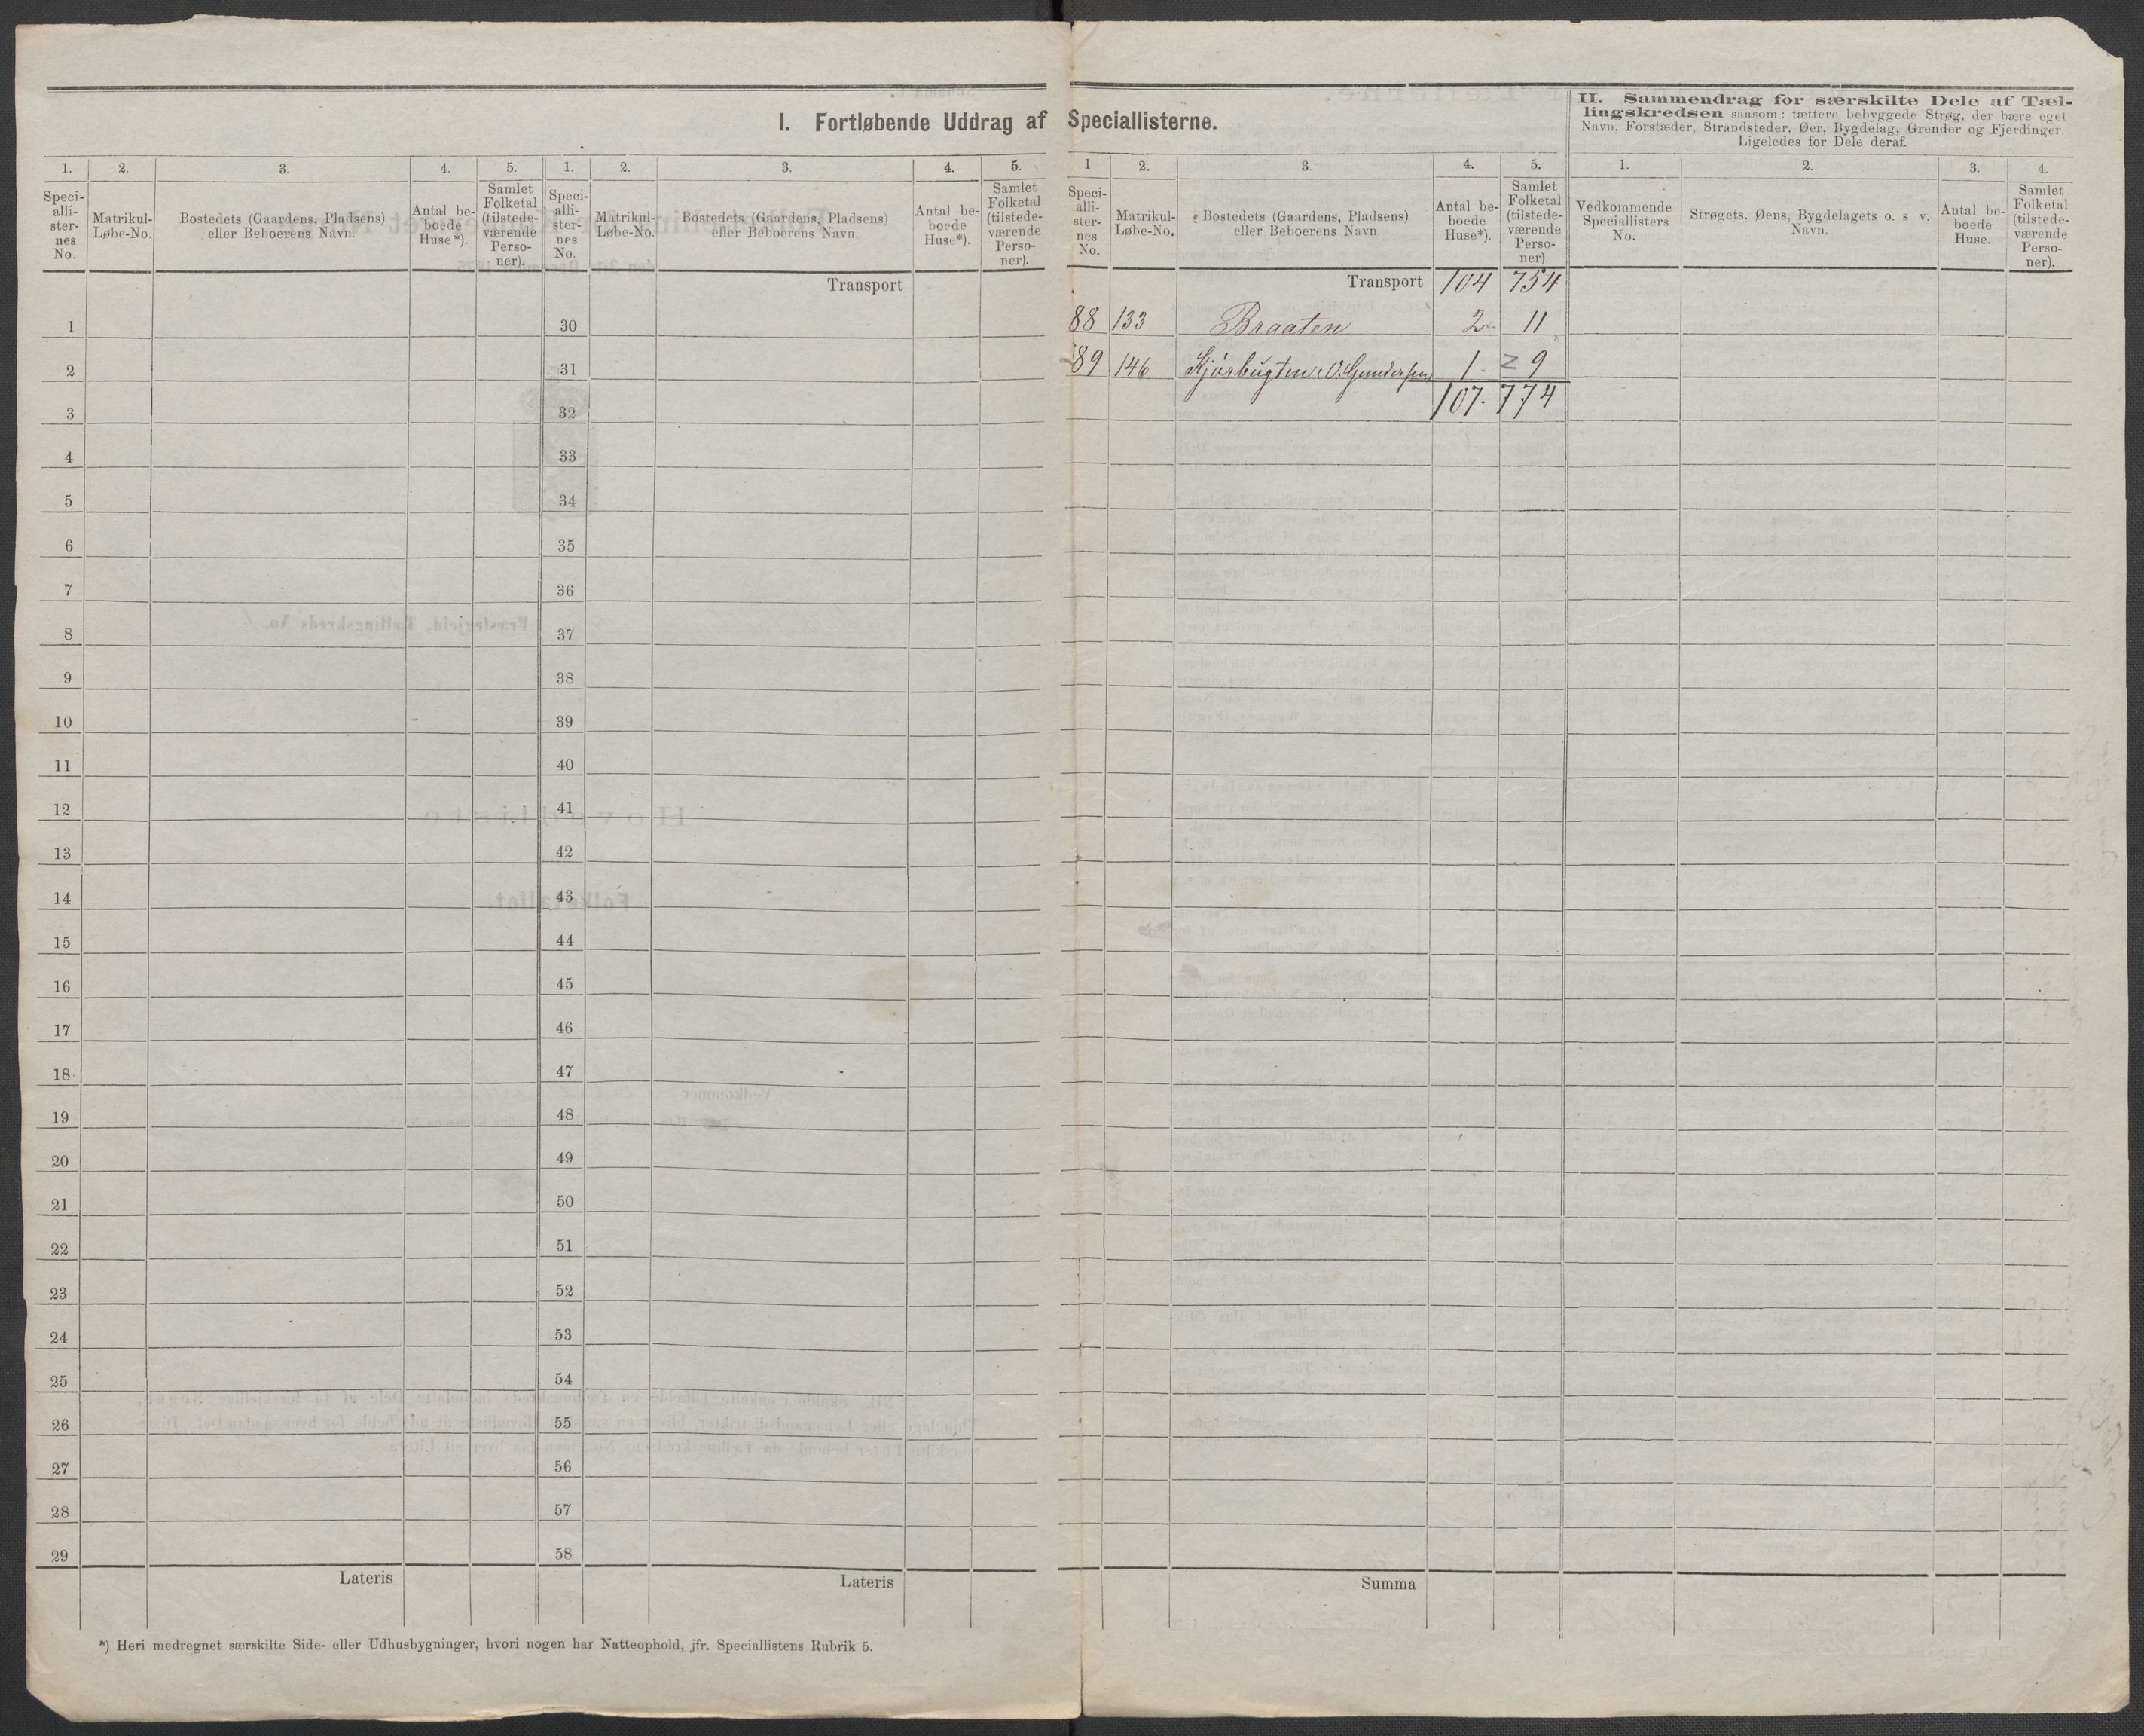 I. Fortløbende Uddrag af Speciallisterne.
II. Sammendrag for særskilte Dele af Tæl-
lingskredsen saasom: tættere bebyggede Strøg, der bære eget
Navn, Forstæder, Strandsteder, Øer, Bygdelag, Grender og Fjerdinger.
Ligeledes for Dele deraf.
1. 2. 3. 4. 5. 1. 2. 3. 4. 5. 1 2. 3. 4. 5. 1. 2. 3. 4.
Speci-
alli-
ster-
nes
No.
Matrikul-
Løbe-No.
Bostedets (Gaardens, Pladsens)
eller Beboerens Navn.
Antal be-
boede
Huse*).
Samlet
Folketal
(tilstede-
værende
Perso-
ner).
Speci-
alli-
ster-
nes
No.
Matrikul-
Løbe-No.
Bostedets (Gaardens, Pladsens)
eller Beboerens Navn.
Antal be-
boede
Huse*).
Samlet
Folketal
(tilstede-
værende
Perso-
ner).
Speci-
alli-
ster-
nes
No.
Matrikul-
Løbe-No.
Bostedets (Gaardens, Pladsens)
eller Beboerens Navn.
Antal be-
boede
Huse*).
Samlet
Folketal
(tilstede-
værende
Perso-
ner).
Vedkommende
Speciallisters
No.
Strøgets, Øens, Bygdelagets o. s. v.
Navn.
Antal be-
boede
Huse.
Samlet
Folketal
(tilstede-
værende
Perso-
ner).
Transport
Transport 104 754
1 30 88 133 Braaten 2 11
2 31 89 146 Kjørbugten O. Gundersen 1 9
3 32 107. 774
4 33
5 34
6 35
7 36
8 37
9 38
10 39
11 40
12 41
13 42
14 43
15 44
16 45
17 46
18 47
19 48
20 49
21 50
22 51
23 52
24 53
25 54
26 55
27 56
28 57
29 58
Lateris Lateris Summa
*) Heri medregnet særskilte Side- eller Udhusbygninger, hvori nogen har Natteophold, jfr. Speciallistens Rubrik 5.